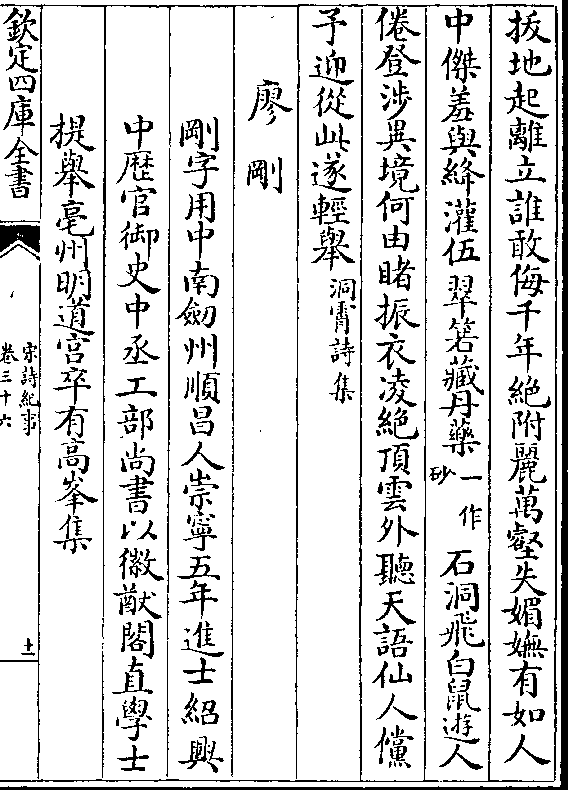 拔地起離立誰敢侮千年絶附麗萬壑失媚嫵有如人
中傑羞與絳灌伍翠箬藏丹藥一作砂石洞飛白鼠遊人
倦登涉異境何由睹振衣凌絶頂雲外聽天語仙人儻
予迎從此遂輕舉洞霄詩集
廖剛
剛字用中南劒州順昌人崇寧五年進士紹興
中歴官御史中丞工部尚書以徽猷閣直學士
提舉亳州明道宮卒有高峯集
欽定四庫全書
宋詩紀事
卷三十六
十一